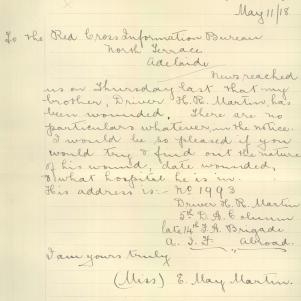 May 11/18
To the Red Cross Information Bureau
North Terrace
Adelaide
News reached
us on Thursday last that my
brother, Driver H. R. Martin, has
been wounded. There are no
particulars whatever, in the notice.
I would be so pleased if you
would try & find out the nature
of his wound, date wounded,
& what hospital he is in.
His address is:- No 1993
Driver H. R. Martin
5th D. A. Column
late 14th F. A. Brigade
A. I. F. Abroad.
I am yours truly
(Miss) E. May Martin.